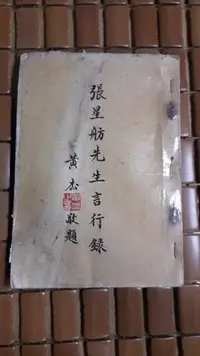 張星舫先生言行錄
黃杰敬題